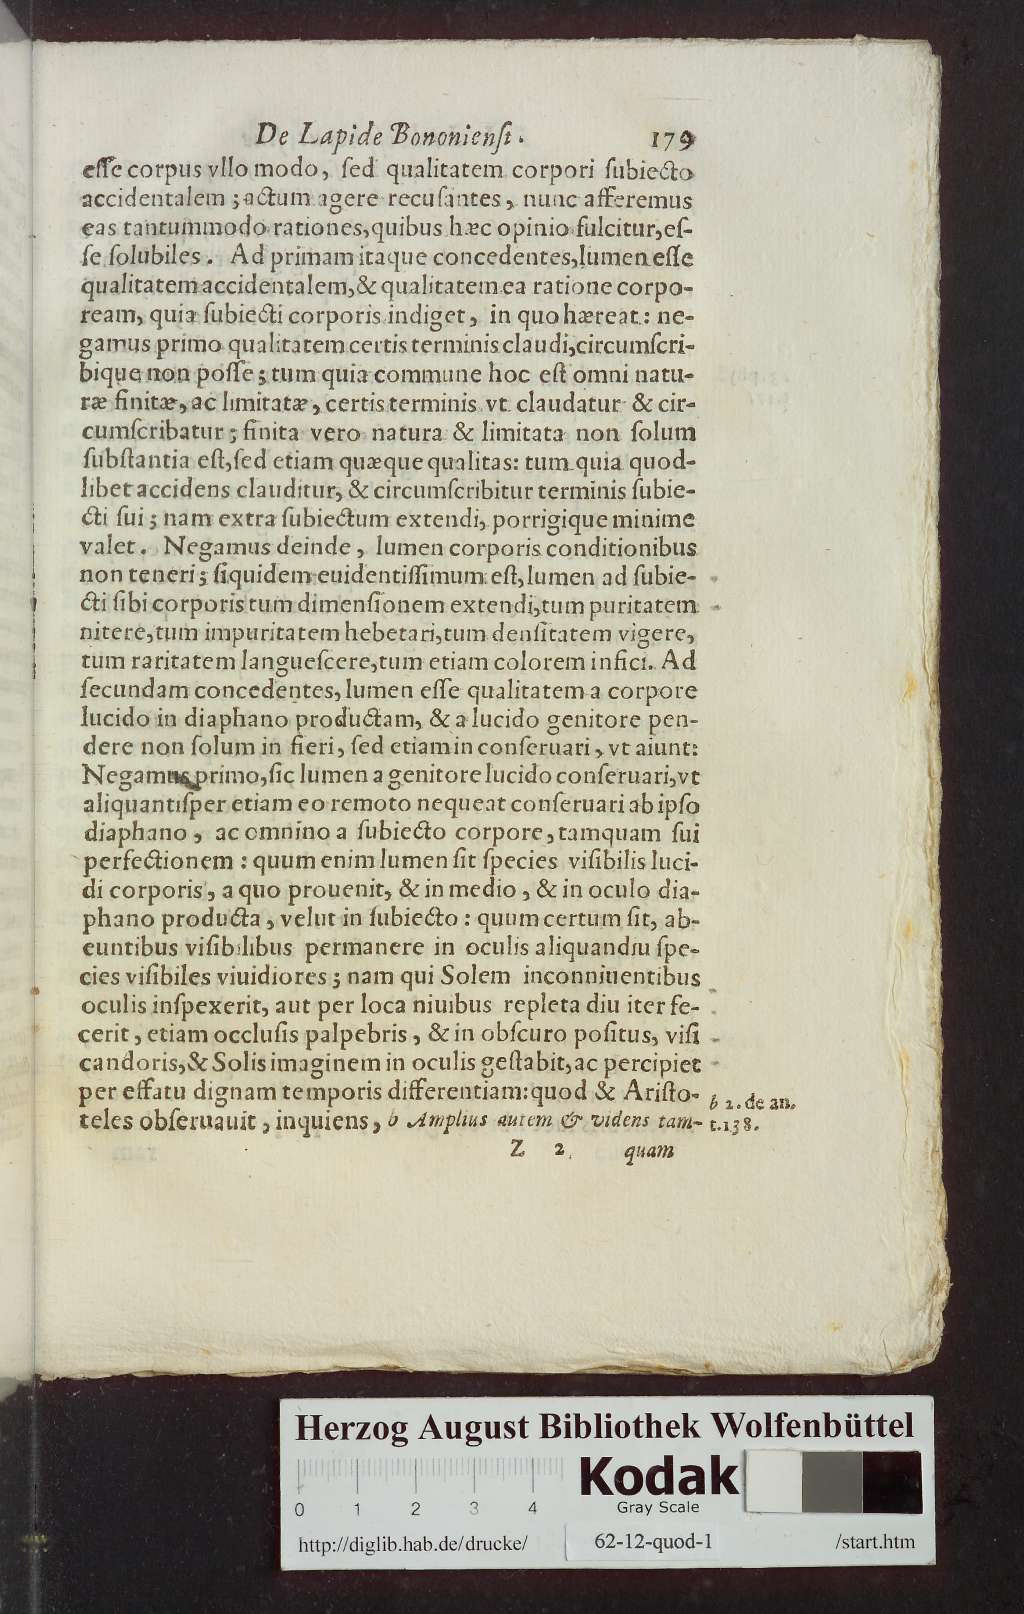 De Lapide Bononienſi. 179
eſſe corpus vllo modo, ſed qualitatem corpori ſubiecto
accidentalem; actum agere recuſantes, nunc afferemus
eas tantummodo rationes, quibus hæc opinio fulcitur, eſ-
ſe ſolubiles. Ad primam itaque concedentes, lumen eſſe
qualitatem accidentalem, & qualitatem ea ratione corpo-
ream, quia ſubiecti corporis indiget, in quo hæreat: ne-
gamus primo qualitatem certis terminis claudi, circumſcri-
bique non poſſe; tum quia commune hoc eſt omni natu-
ræ finitæ, ac limitatæ, certis terminis vt claudatur & cir-
cumſcribatur; finita vero natura & limitata non ſolum
ſubſtantia eſt, ſed etiam quæque qualitas: tum quia quod-
libet accidens clauditur, & circumſcribitur terminis ſubie-
cti ſui; nam extra ſubiectum extendi, porrigique minime
valet. Negamus deinde, lumen corporis conditionibus
non teneri; ſiquidem euidentiſſimum eſt, lumen ad ſubie-
cti ſibi corporis tum dimenſionem extendi, tum puritatem
nitere, tum impuritatem hebetari, tum denſitatem vigere,
tum raritatem langueſcere, tum etiam colorem infici. Ad
ſecundam concedentes, lumen eſſe qualitatem a corpore
lucido in diaphano productam, & a lucido genitore pen-
dere non ſolum in fieri, ſed etiam in conſeruari, vt aiunt:
Negamus primo, ſic lumen a genitore lucido conſeruari, vt
aliquantiſper etiam eo remoto nequeat conſeruari ab ipſo
diaphano, ac omnino a ſubiecto corpore, tamquam ſui
perfectionem: quum enim lumen ſit ſpecies viſibilis luci-
di corporis, a quo prouenit, & in medio, & in oculo dia-
phano producta, velut in ſubiecto: quum certum ſit, ab-
euntibus viſibilibus permanere in oculis aliquandiu ſpe-
cies viſibiles viuidiores; nam qui Solem inconniuentibus
oculis inſpexerit, aut per loca niuibus repleta diu iter fe-
cerit, etiam occluſis palpebris, & in obſcuro poſitus, viſi
candoris, & Solis imaginem in oculis geſtabit, ac percipiet
per effatu dignam temporis differentiam: quod & Ariſto-
teles obſeruauit, inquiens, b Amplius autem & videns tam-
b 2. de an.
t.138.
Z 2 quam
Herzog August Bibliothek Wolfenbüttel
0 1 2 3 4
Kodak
Gray Scale
http://diglib.hab.de/drucke/ 62-12-quod-1 /start.htm